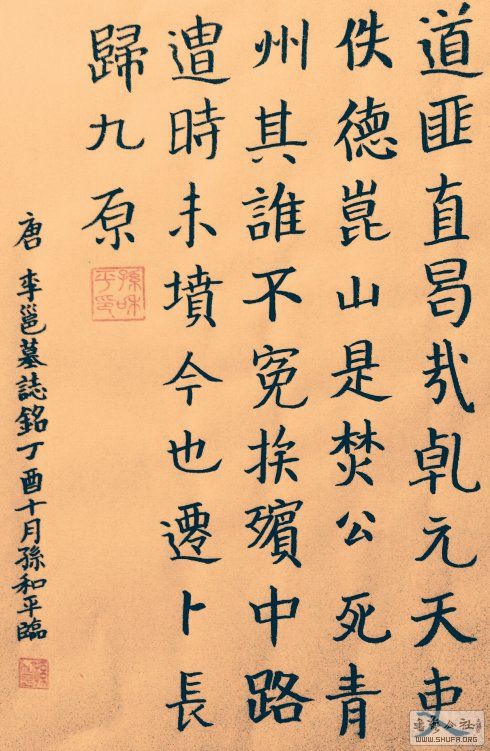 道匪直曷哉乾元天吏
佚德崑山是焚公死青
州其誰不冤挨殯中路
遭時未墳今也遷卜長
歸九原
孫和平印
唐 李邕墓誌銘丁酉十月孫和平臨
WWW.SHUFA.ORG